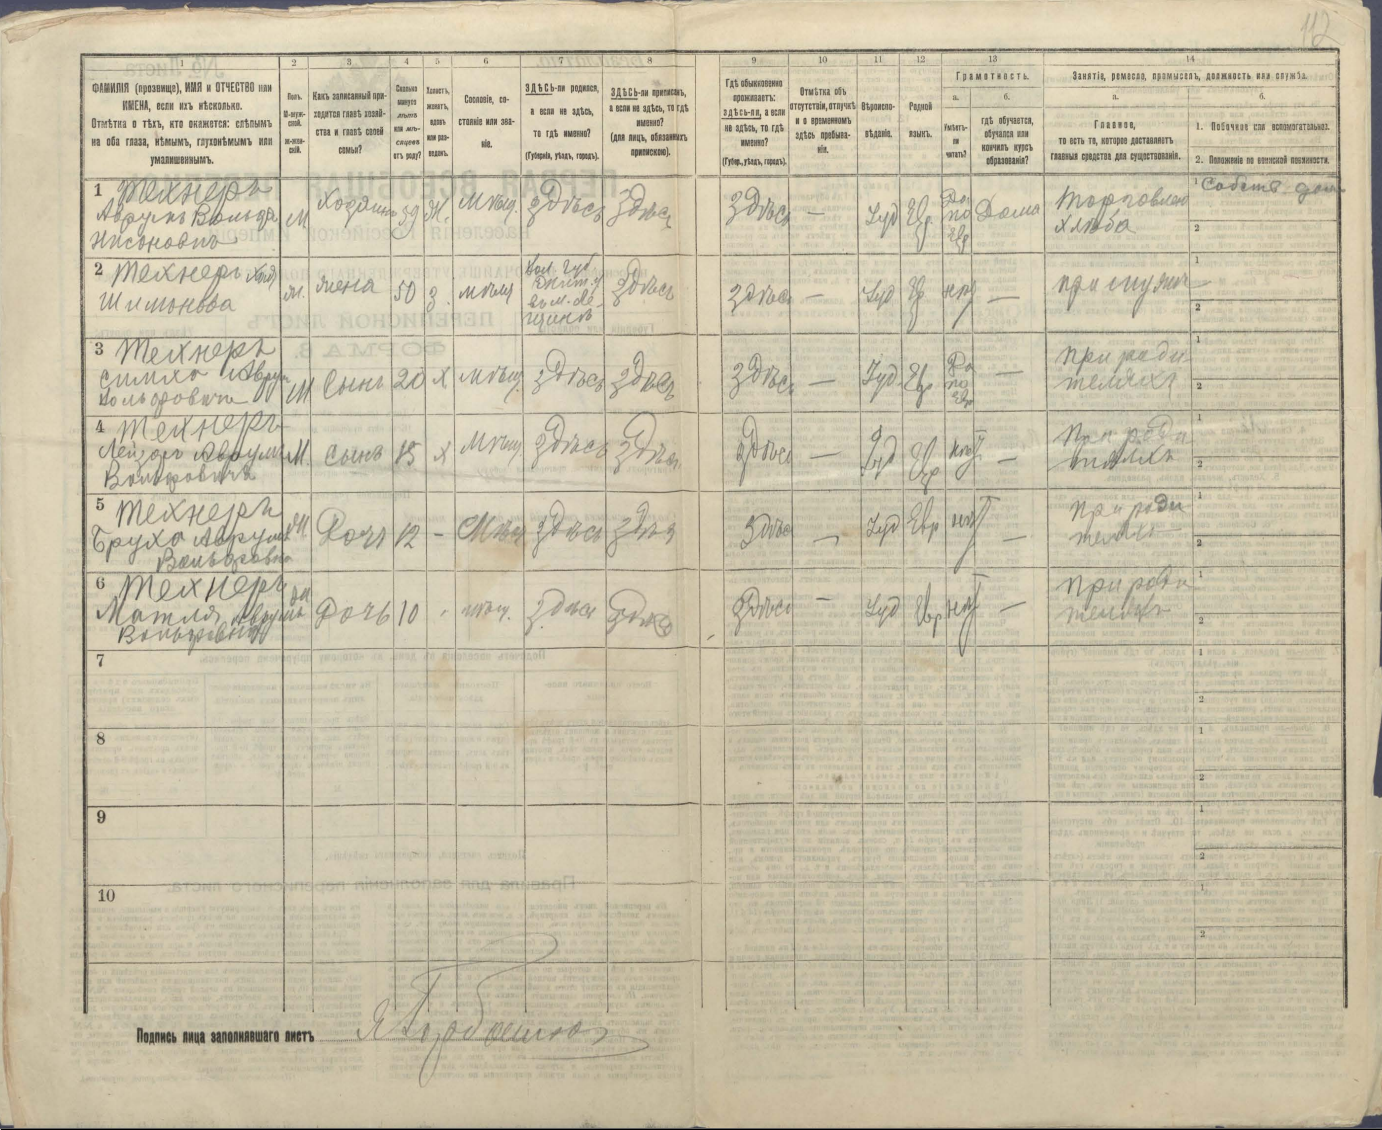 112
1
2
3
4
5
6
7
8
9
10
11
12
13
14
ФАМИЛІЯ (прозвище), ИМЯ и ОТЧЕСТВО или
ИМЕНА, если ихъ нѣсколько.
Отмѣтка о тѣхъ, кто окажется: слѣпымъ
на оба глаза, нѣмымъ, глухонѣмымъ или
умалишеннымъ.
Полъ.
М-муж-
ской.
Ж-жен-
скій.
Какъ записанный при-
ходится главѣ хозяй-
ства и главѣ своей
семьи?
Сколько
минуло
лѣтъ
или мѣ-
сяцевъ
отъ роду?
Холостъ,
женатъ,
вдовъ
или раз-
веденъ.
Сословіе, со-
стояніе или зва-
ніе.
ЗДѢСЬ-ли родился,
а если не здѣсь,
то гдѣ именно?
(Губернія, уѣздъ, городъ).
ЗДѢСЬ-ли приписанъ,
а если не здѣсь, то гдѣ
именно?
(для лицъ, обязанныхъ
припискою).
Гдѣ обыкновенно
проживаетъ:
здѣсь-ли, а если
не здѣсь, то гдѣ
именно?
(Губер., уѣздъ, городъ).
Отмѣтка объ
отсутствіи, отлучкѣ
и о временномъ
здѣсь пребыва-
ніи.
Вѣроиспо-
вѣданіе.
Родной
языкъ.
Грамотность.
а.
Умѣетъ-
ли
читать?
б.
гдѣ обучается,
обучался или
кончилъ курсъ
образованія?
Занятіе, ремесло, промыселъ, должность или служба.
а.
Главное,
то есть то, которое доставляетъ
главныя средства для существованія.
б.
1. Побочное или вспомогательное.
2. Положеніе по воинской повинности.
1 Технеръ
Аврумъ Вольфъ
Нисоновичъ
М Хозяинъ 59 Ж. Мѣщ. Здѣсь Здѣсь Здѣсь — Іуд Евр. Да по Евр Дома Торговля
хлѣба
1 Собств. дом
2
2 Технеръ Хая
Шимонова
жена 50 З. мѣщ Вол. губ
Здѣсь Здѣсь — Іуд Евр нѣт — при мужѣ
1
2
3 Технеръ
Симха Аврум
Вольфовичъ
М Сынъ 20 Х мѣщ. Здѣсь Здѣсь Здѣсь — Іуд. Евр Да по Евр — при роди
теляхъ
1
2
4 Технеръ
Лейзоръ Аврумъ
Вольфовичъ
М. Сынъ 15 Х Мѣщ. Здѣсь Здѣсь Здѣсь — Іуд Евр нѣт — При роди
теляхъ
1
2
5 Технеръ
Бруха Аврумъ
Вольфовна
Дочь 12 — Мѣщ Здѣсь Здѣсь Здѣсь — Іуд Евр нѣт — При роди
теляхъ
1
2
6 Технеръ
Матля Аврумъ
Вольфовна
Дочь 10 мѣщ. Здѣсь Здѣсь Здѣсь — Іуд Евр нѣт — При роди
теляхъ
1
2
7
1
2
8
1
2
9
1
2
10
1
2
Подпись лица заполнявшаго листъ